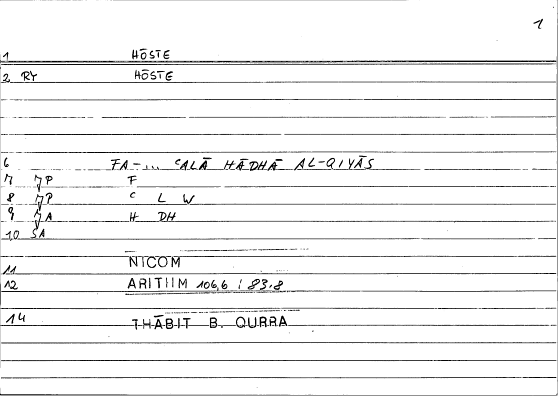 1
1 HŌSTE
2 RY HŌSTE
6 FA-... ʿALĀ HĀDHĀ AL-QIYĀS
7 7P F
8 7P ʿ L W
9 7A H DH
10 SA
11 NICOM
12 ARITIIM 106,6 / 83.8
14 THĀBIT B. QURRA